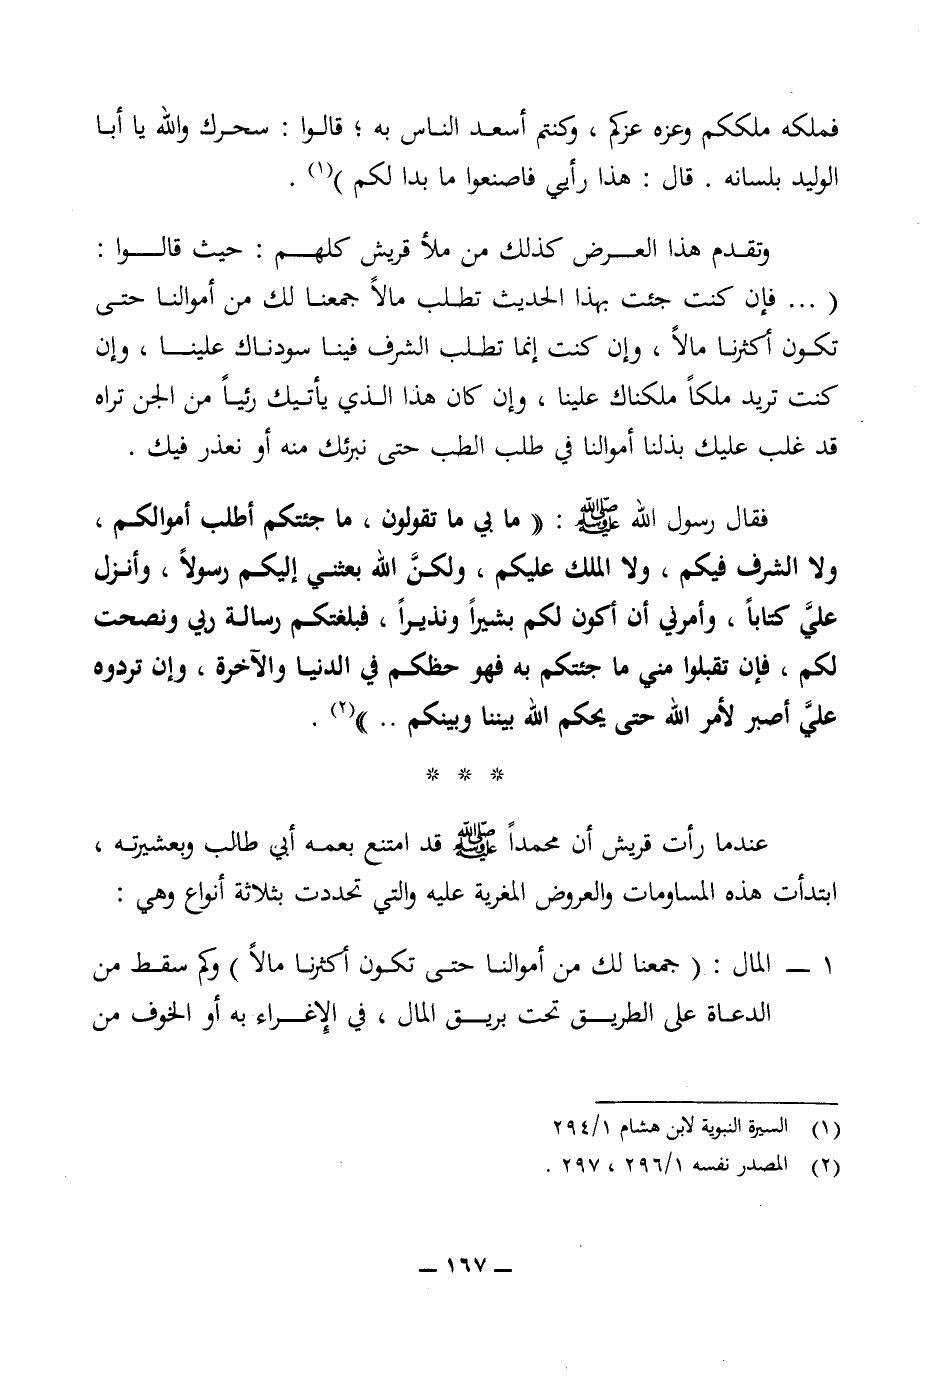 فملكه ملككم وعزه عزكم ، وكنتم أسعد الناس به ؛ قالوا : سحرك والله يا أبا
الوليد بلسانه . قال : هذا رأيي فاصنعوا ما بدا لكم )(١) .
وتقدم هذا العرض كذلك من ملأ قريش كلهم : حيث قالوا :
( ... فإن كنت جئت بهذا الحديث تطلب مالاً جمعنا لك من أموالنا حتى
تكون أكثرنا مالاً ، وإن كنت إنما تطلب الشرف فينا سودناك علينا ، وإن
كنت تريد ملكاً ملكناك علينا ، وإن كان هذا الذي يأتيك رئياً من الجن تراه
قد غلب عليك بذلنا أموالنا في طلب الطب حتى نبرئك منه أو نعذر فيك .
فقال رسول الله ﷺ : « ما بي ما تقولون ، ما جئتكم أطلب أموالكم ،
ولا الشرف فيكم ، ولا الملك عليكم ، ولكنَّ الله بعثني إليكم رسولاً ، وأنزل
عليَّ كتاباً ، وأمرني أن أكون لكم بشيراً ونذيراً ، فبلغتكم رسالة ربي ونصحت
لكم ، فإن تقبلوا مني ما جئتكم به فهو حظكم في الدنيا والآخرة ، وإن تردوه
عليَّ أصبر لأمر الله حتى يحكم الله بيننا وبينكم .. »(٢) .
* * *
عندما رأت قريش أن محمداً ﷺ قد امتنع بعمه أبي طالب وبعشيرته ،
ابتدأت هذه المساومات والعروض المغرية عليه والتي تحددت بثلاثة أنواع وهي :
١ ـ المال : ( جمعنا لك من أموالنا حتى تكون أكثرنا مالاً ) وكم سقط من
الدعاة على الطريق تحت بريق المال ، في الإغراء به أو الخوف من
(١) السيرة النبوية لابن هشام ٢٩٤/١
(٢) المصدر نفسه ٢٩٦/١ ، ٢٩٧ .
ـ ١٦٧ ـ